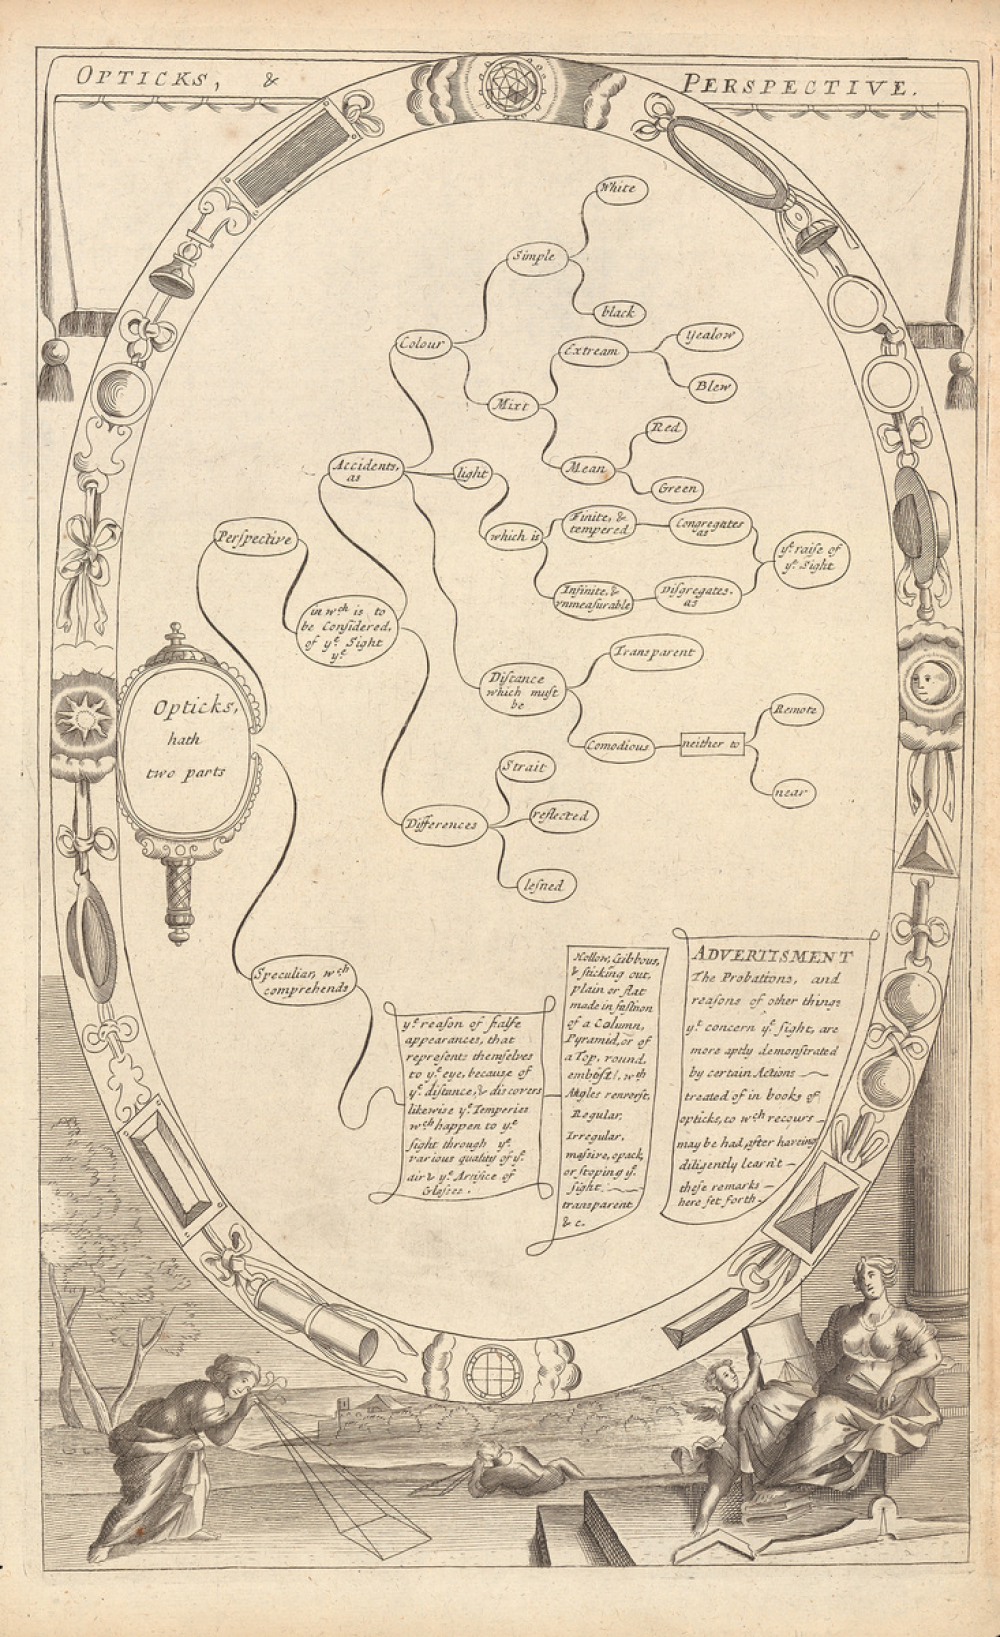 OPTICKS, &
PERSPECTIVE.
White
Simple
black
Colour
Extream
Yealow
Blew
Mixt
Red
Mean
Green
Accidents,
as
light
which is
Finite, &
tempered
Congregates
as
Infinite, &
vnmeasurable
Disgregates,
as
yᵉ raise of
yᵉ Sight
Perspective
in wᶜʰ is to
be Considered,
of yᵉ Sight
yᵉ
Distance
which must
be
Transparent
Comodious
neither to
Remote
near
Opticks,
hath
two parts
Differences
Strait
reflected
lesned
Speculiar, wᶜʰ
comprehends
yᵉ reason of false
appearances, that
represents themselves
to yᵉ eye, because of
yᵉ distance, & discovers
likewise yᵉ Temperies
wᶜʰ happen to yᵉ
sight through yᵉ
various quality of yᵉ
air & yᵉ Artifice of
Glasses.
Hollow, Gibbous,
& sticking out,
plain or flat
made in fashion
of a Column,
Pyramid, or of
a Top, round,
wᵗʰ
Angles
Regular,
Irregular,
massive, opack,
or stoping yᵉ
sight
transparent
& c.
ADVERTISMENT
The Probations, and
reasons of other things
yᵗ concern yᵉ sight, are
more aptly demonstrated
by certain Actions
treated of in books of
opticks, to wᶜʰ recours
may be had, after haveing
diligently learn't
these remarks
here set forth.